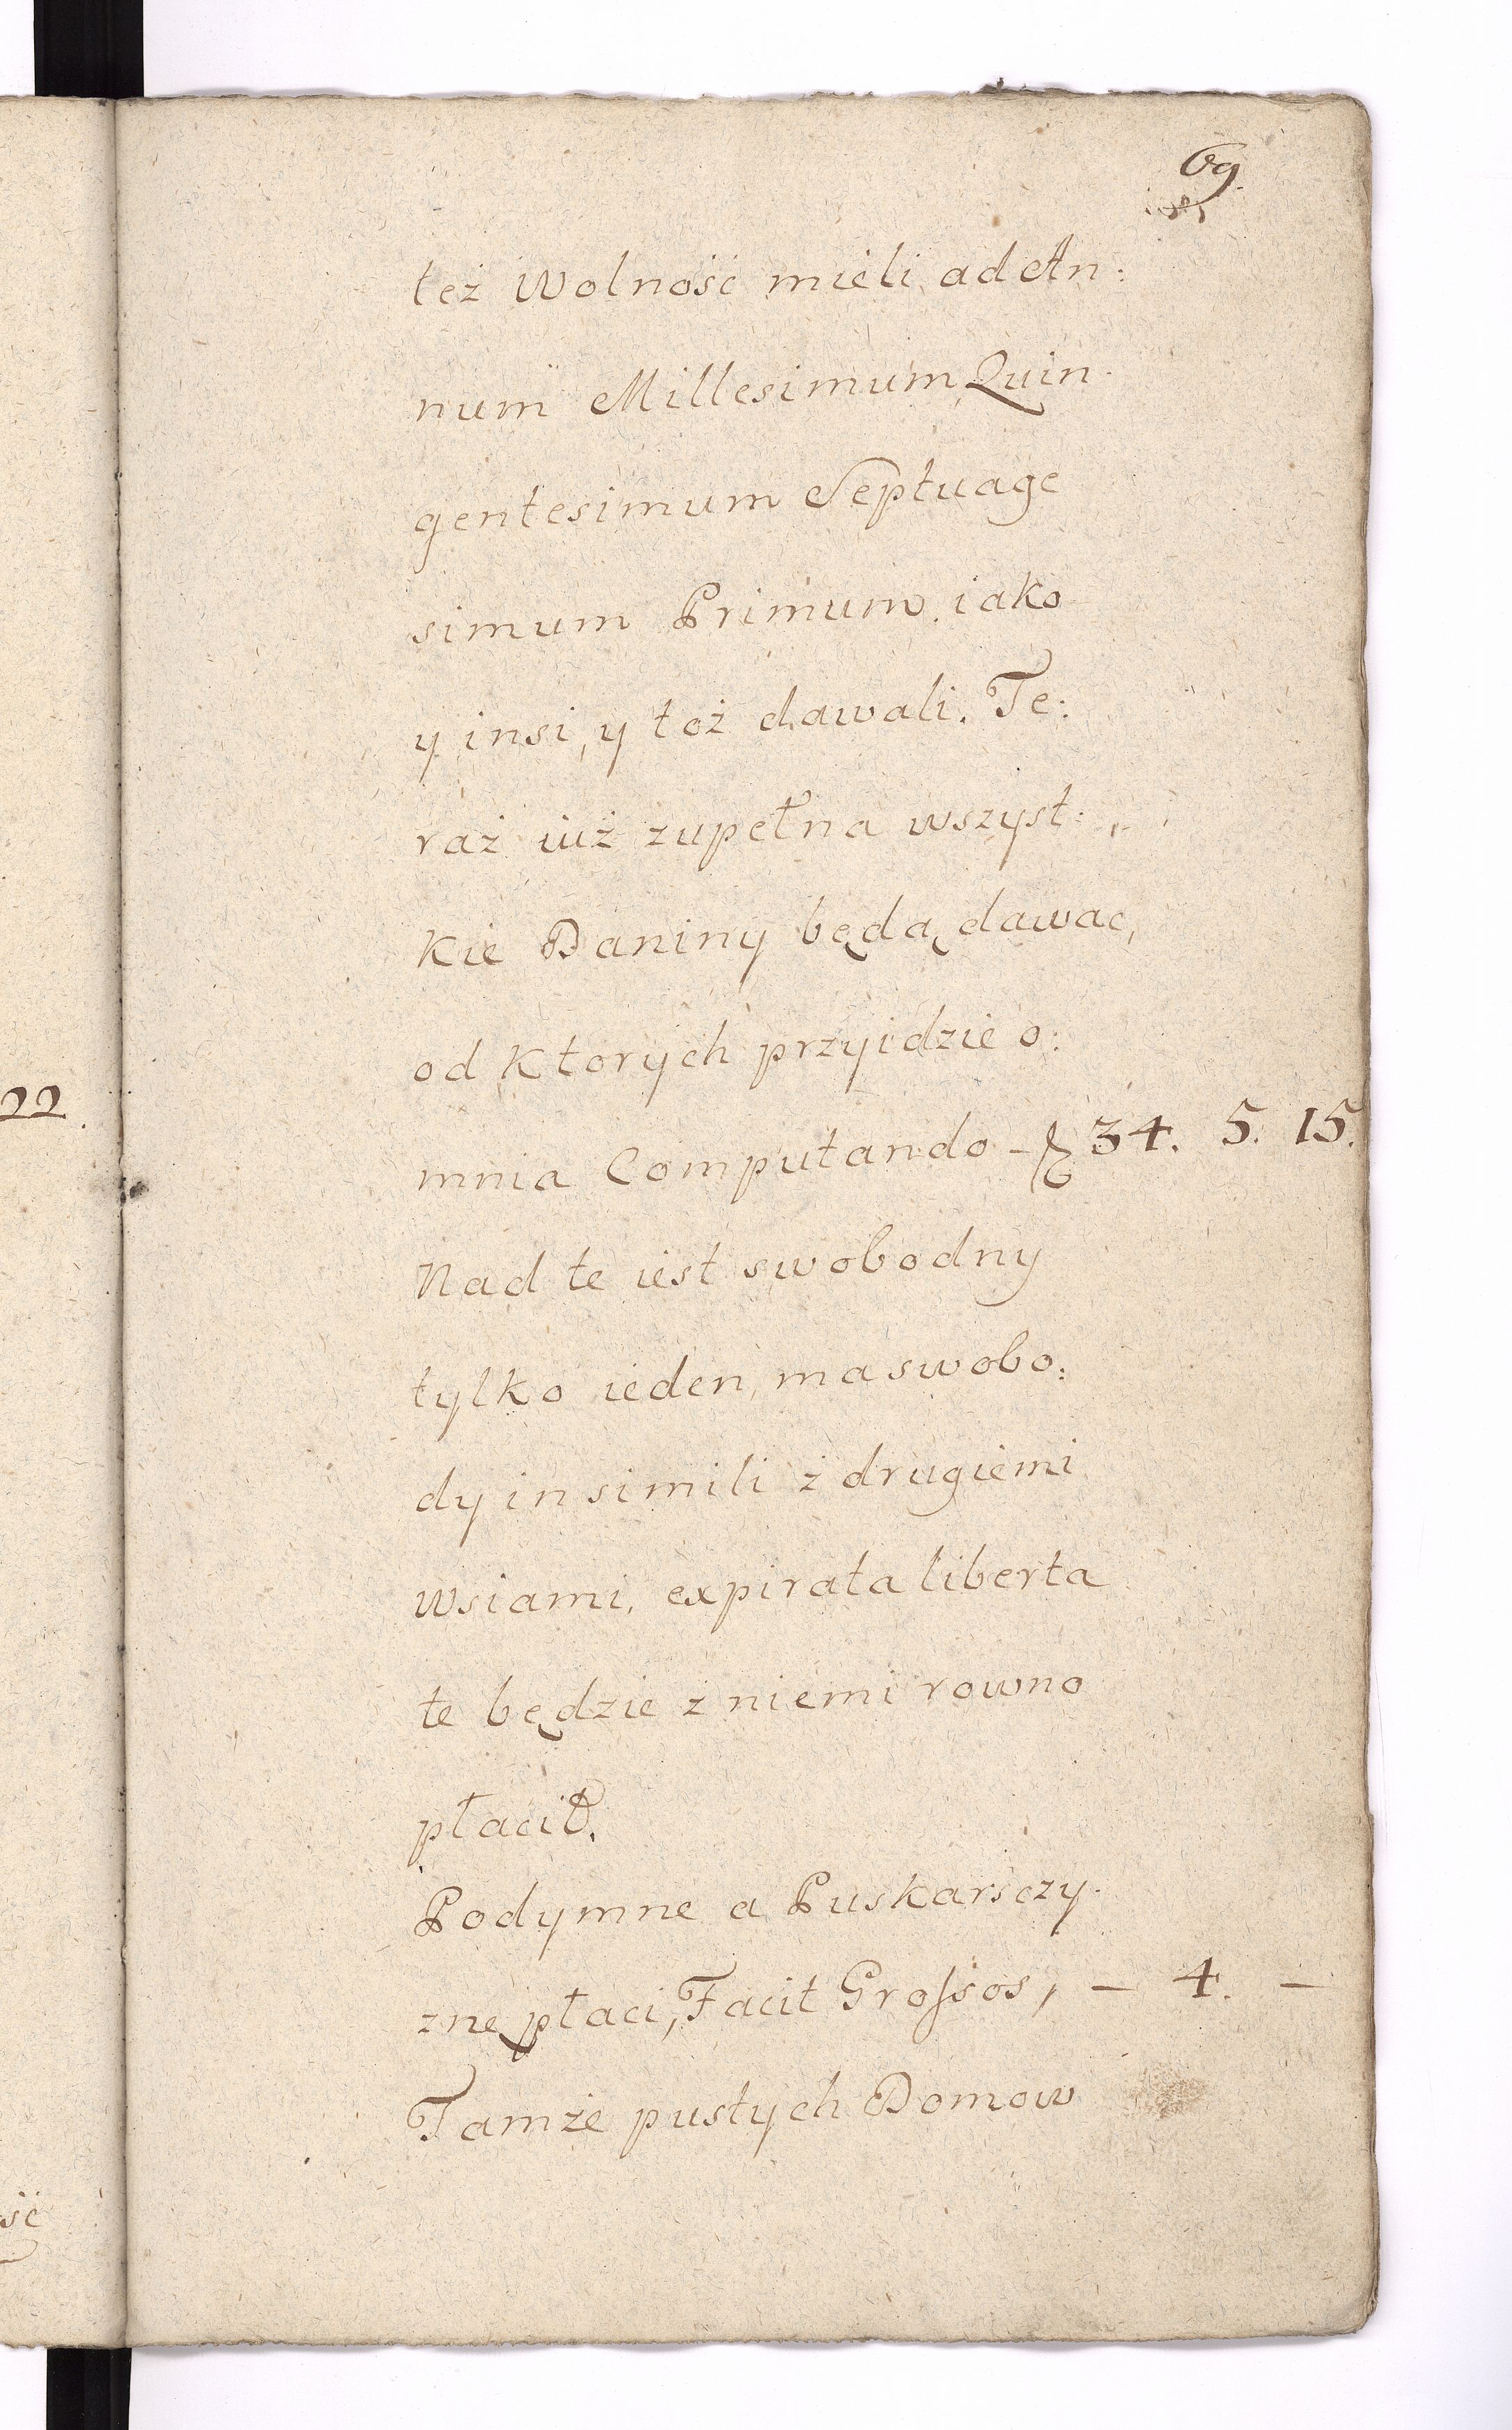 69.
też Wolność mieli ad An:
num Millesimum Quin-
gentesimum Septuage
simum Primum, iako
y insi, y toż dawali. Te:
raż iuż zupełna wszyst:
kie Daniny będą dawac,
od ktorych przyidzie o:
mnia Computando - 34. 5. 15.
22
Nad te iest swobodny
tylko ieden, ma swobo:
dy in simili z drugiemi
wsiami, expirata liberta
te będzie z niemi rowno
płacił.
Podymne a Puskarsczy-
znę płaci, Facit Grossos, — 4. —
Tamże pustych Domow
ść